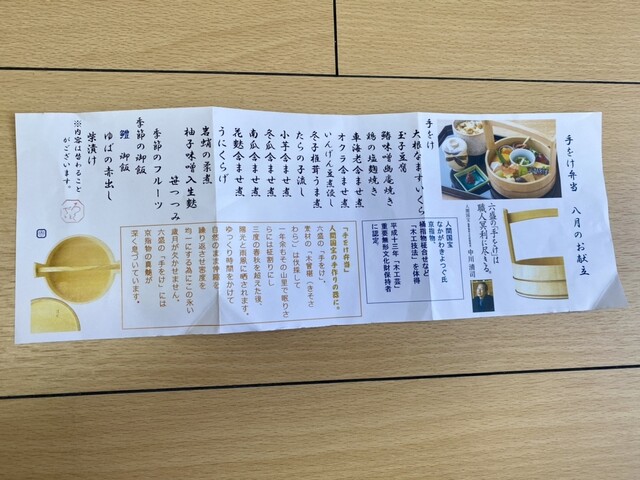 手をけ弁当　八月のお献立
六盛の「手をけ」は
職人冥利に尽きる。
人間国宝
中川清司
手をけ
大根なますいくら
玉子豆腐
鰆味噌幽庵焼き
鶏の塩麹焼き
車海老含ませ煮
オクラ含ませ煮
いんげん豆煮浸し
冬子椎茸うま煮
たらの子流し
小芋含ませ煮
冬瓜含ませ煮
南瓜含ませ煮
花麩含ませ煮
うにくらげ
岩蛸の柔煮
柚子味噌入生麩
笹つつみ
季節のフルーツ
季節の御飯
鱧　御飯
ゆばの赤出し
柴漬け
※内容は替わること
がございます。
人間国宝
なかがわきよつぐ氏
京指物、
桶指物秘合せなど
「木工技法」を体得
平成十三年「木工芸」
重要無形文化財保持者
に認定。
「手をけ弁当」
人間国宝の手作りの器に。
六盛の「手をけ」、
素材の"木曽椹（きそさ
わら）"は伐採して
一年余もその山里で眠りさ
らには柾割りにし
三度の春秋を超えた後、
陽光と雨風に晒されます。
ゆっくり時間をかけて
自然のまま伸縮を
繰り返させ密度を
均一にする為にこの永い
歳月が欠かせません。
六盛の「手をけ」には
京指物の真髄が
深く息づいています。